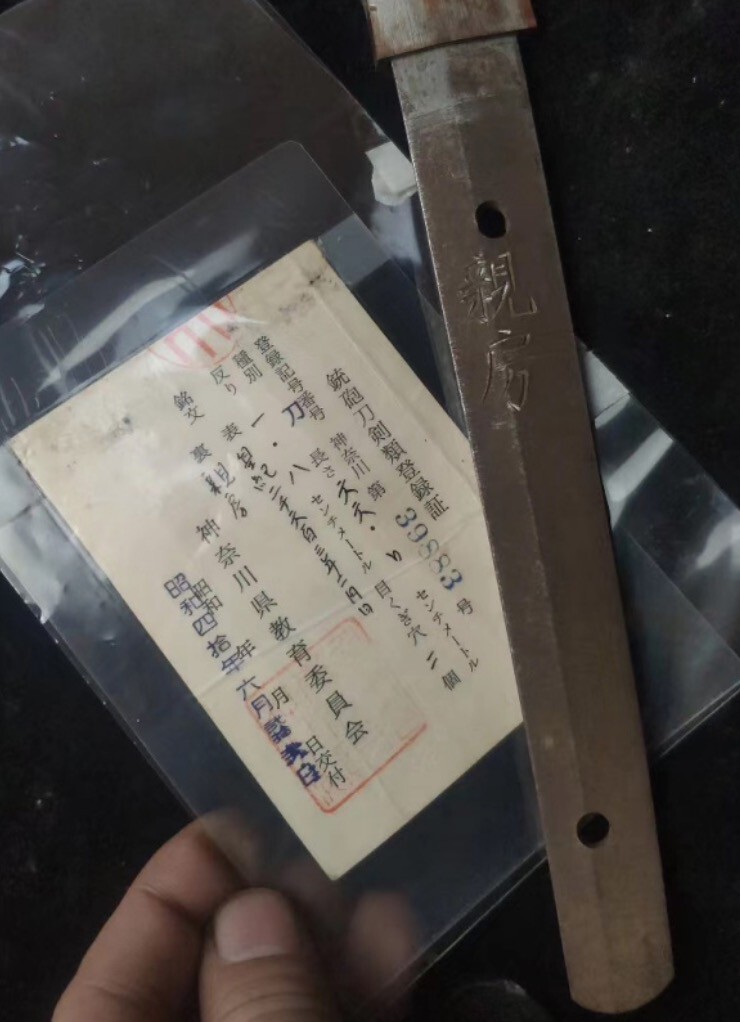 銃砲刀剣類登録証
登録記号番号 神奈川 第 39883 号
種別 刀 長さ センチメートル
反り 一・八 センチメートル 目くぎ穴 二 個
銘文 表 皇紀二千六百三年二月日
裏 親房
昭和四拾年六月 日交付
神奈川県教育委員会
親房